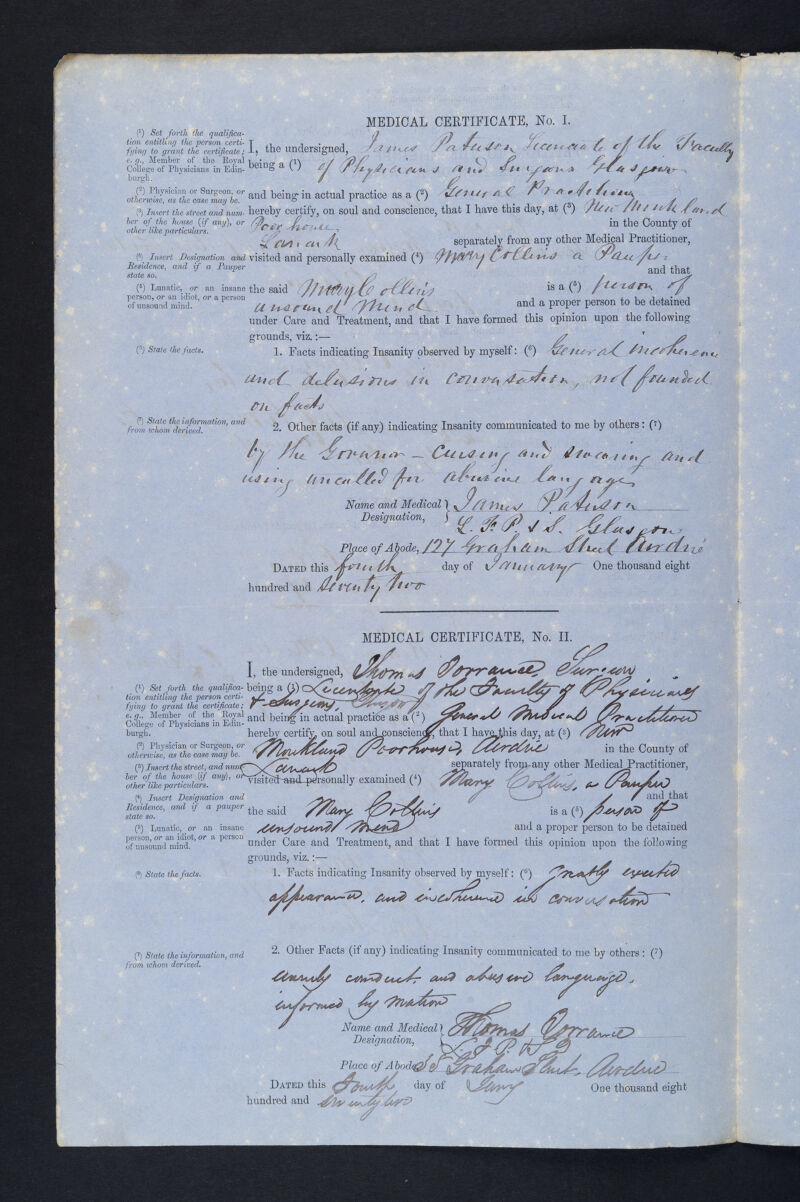 MEDICAL CERTIFICATE, No. I.
(1) Set forth the qualifica-
tion entitling the person certi-
fying to grant the certificate;
e. g., Member of the Royal
College of Physicians in Edin-
burgh.
(2) Physician or Surgeon, or
otherwise, as the case may be.
(3) Insert the street and num-
ber of the house (if any), or
other like particulars.
(4) Insert Designation and
Residence, and if a Pauper
state so.
(5) Lunatic, or an insane
person, or an idiot, or a person
of unsound mind.
(6) State the facts.
(7) State the information, and
from whom derived.
I, the undersigned, James Paterson Licenciate of the Faculty
being a (1) of Physicians and Surgons Glasgow
and being in actual practice as a (2) General Practitioner
hereby certify, on soul and conscience, that I have this day, at (3) New Monkland
Poor house in the County of
Lanark separately from any other Medical Practitioner,
visited and personally examined (4) Mary Collins a Pauper
and that
the said Mary Collins is a (5) person of
unsound mind and a proper person to be detained
under Care and Treatment, and that I have formed this opinion upon the following
grounds, viz.:—
1. Facts indicating Insanity observed by myself: (6) General incoherence
and delusions in conversation, not founded
on facts
2. Other facts (if any) indicating Insanity communicated to me by others: (7)
by the Governor – cursing and swearing and
using uncalled for abusive language
Name and Medical Designation, James Paterson
L. F. P. & S. Glasgow
Place of Abode, 127 Graham Street Airdrie
DATED this fourth day of January One thousand eight
hundred and Seventy two
MEDICAL CERTIFICATE, No. II.
(1) Set forth the qualifica-
tion entitling the person certi-
fying to grant the certificate;
e. g., Member of the Royal
College of Physicians in Edin-
burgh.
(2) Physician or Surgeon, or
otherwise, as the case may be.
(3) Insert the street, and num-
ber of the house (if any), or
other like particulars.
(4) Insert Designation and
Residence, and if a pauper
state so.
(5) Lunatic, or an insane
person, or an idiot, or a person
of unsound mind.
(6) State the facts.
(7) State the information, and
from whom derived.
I, the undersigned, Thomas Torrance, Surgeon
being a (1) Licentiate of the Faculty of Physicians
& Surgeons, Glasgow
and being in actual practice as a (2) General Medical Practitioner
hereby certify, on soul and conscience, that I have this day, at (3) New
Monkland Poorhouse, Airdrie in the County of
Lanark separately from any other Medical Practitioner,
visited and personally examined (4) Mary Collins, a Pauper
and that
the said Mary Collins is a (5) person of
unsound mind and a proper person to be detained
under Care and Treatment, and that I have formed this opinion upon the following
grounds, viz.:—
1. Facts indicating Insanity observed by myself: (6) greatly excited
appearance, and incoherence in conversation
2. Other Facts (if any) indicating Insanity communicated to me by others: (7)
unruly conduct and abusive language.
informed by Matron
Name and Medical Designation, Thomas Torrance
L F P & S
Place of Abode Graham Street. Airdrie
DATED this Fourth day of Jany One thousand eight
hundred and seventy two